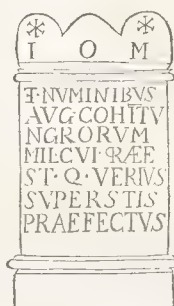 I O M
ET·NVMINIBVS
AVG COH I TV
NGRORVM
MIL CVI·PRÆE
ST·Q·VERIVS
SVPERSTIS
PRAEFECTVS